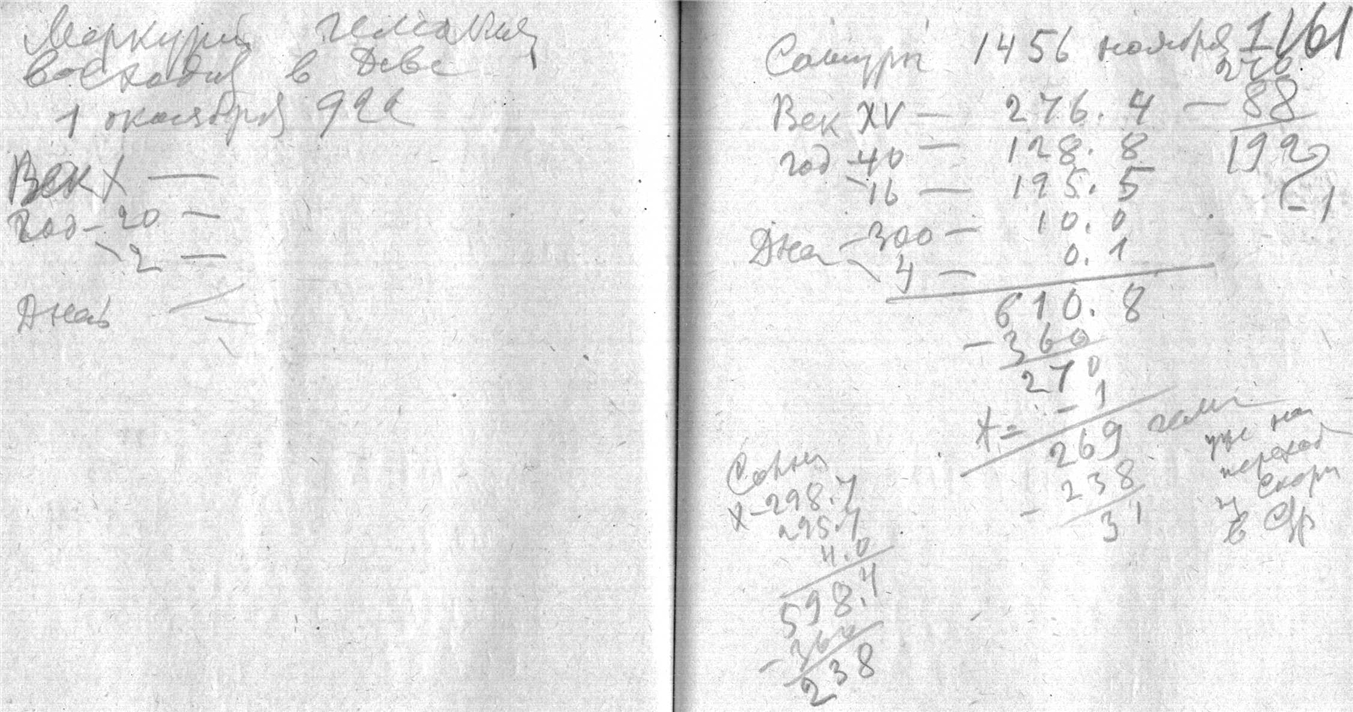 Меркурий
восходил в Деве
1 октября 922
Век X —
Год - 20 —
2 —
Дней
Сатурн 1456 ноября 1
Век XV — 276.4 — 88
год 40 — 128.8 192
16 — 195.5 - 1
Дней - 300 — 10.0
4 — 0.1
610.8
- 360
270
- 1
X = 269
- 238
31
уже на
переход
из Скорп
в Стр
X - 298.7
295.7
4.0
598.4
- 360
238